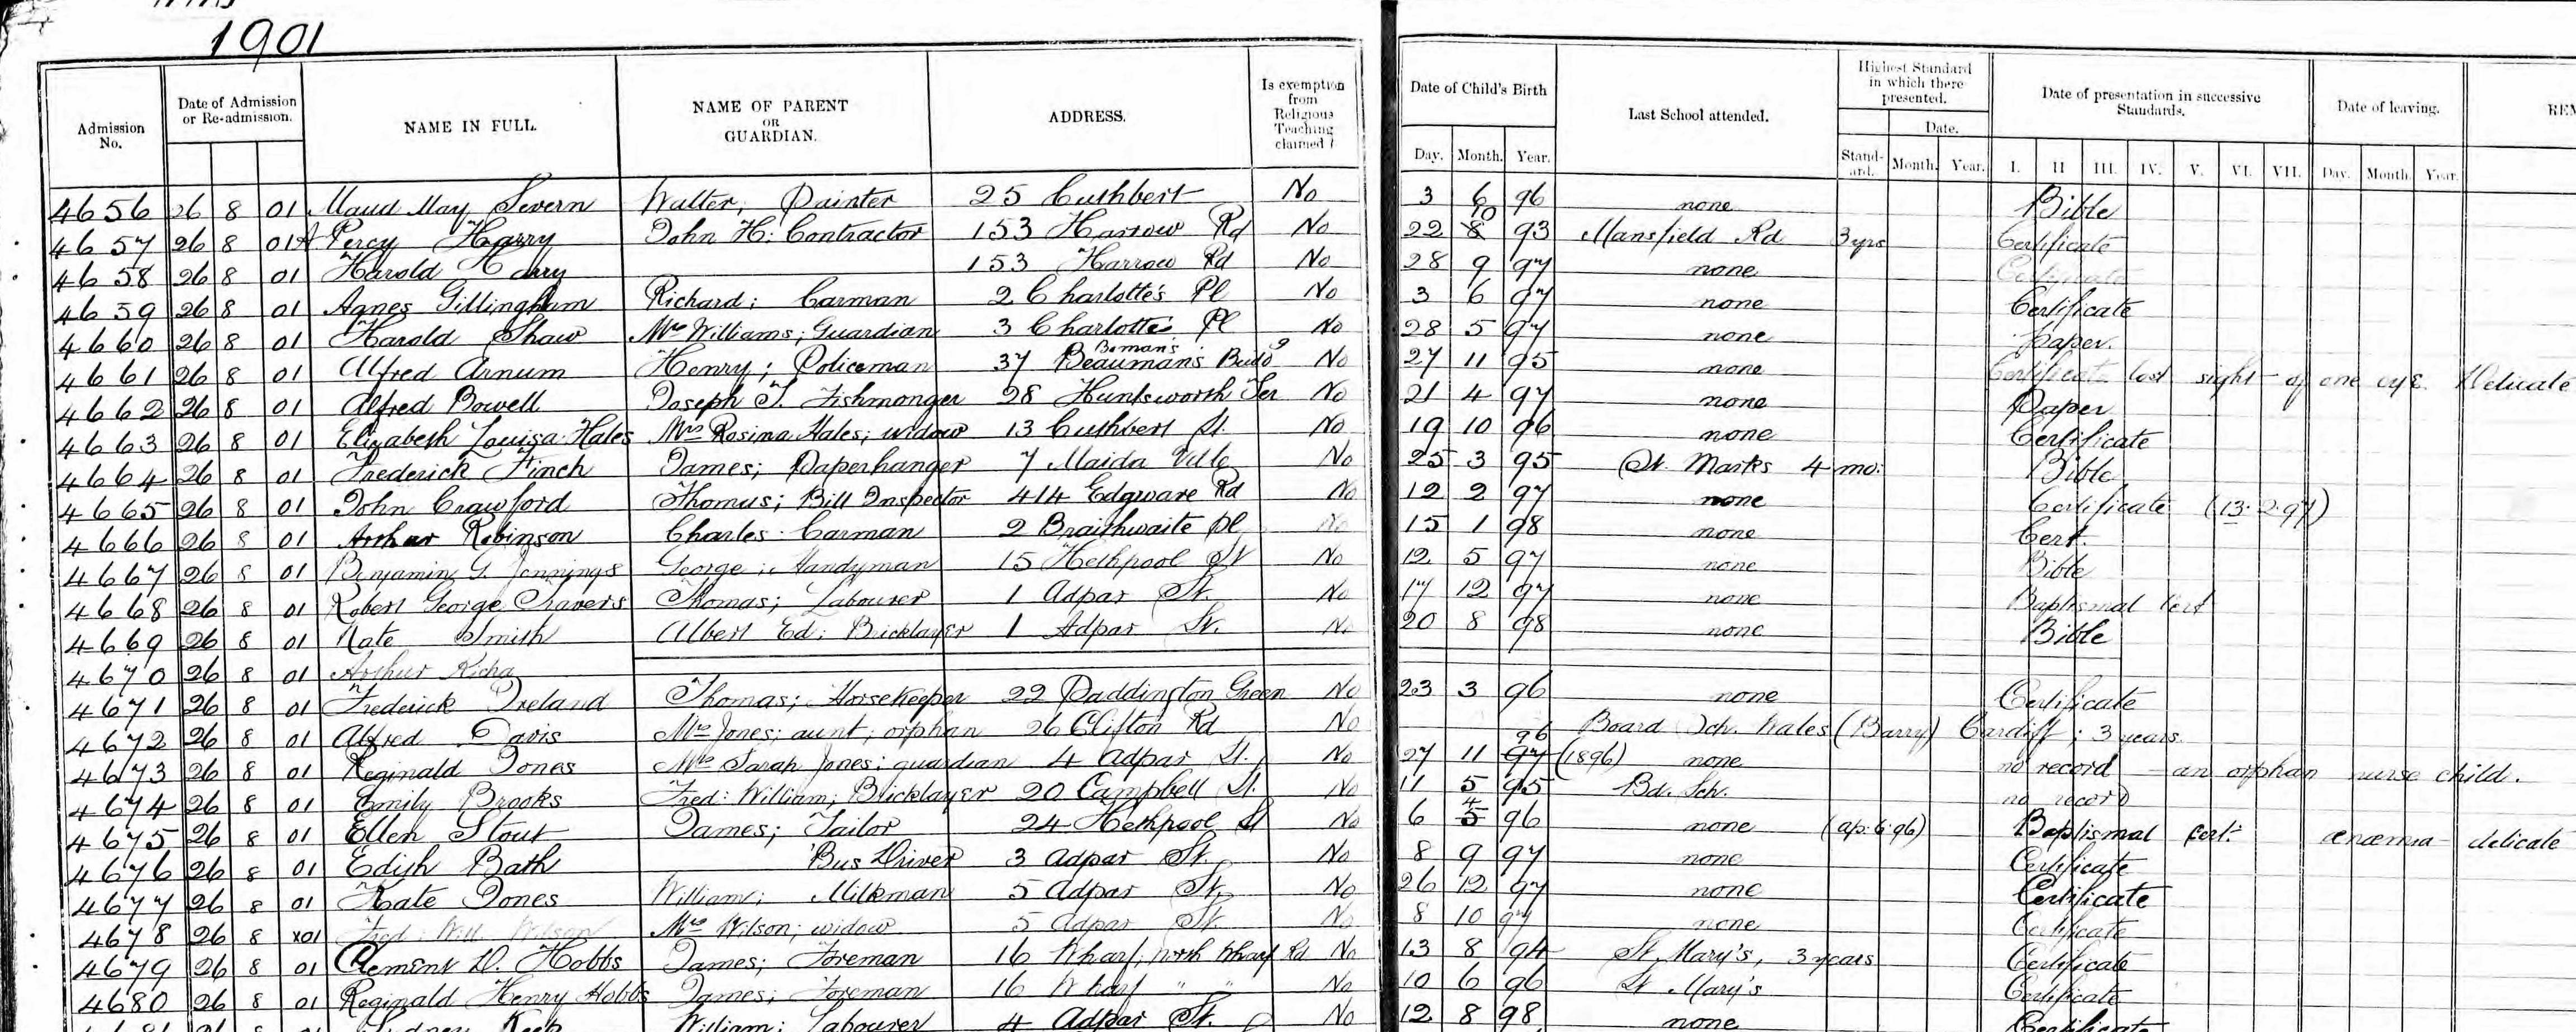 1901
Admission No. Date of Admission or Re-admission. NAME IN FULL. NAME OF PARENT OR GUARDIAN. ADDRESS. Is exemption from Religious Teaching claimed? Date of Child's Birth Last School attended. Highest Standard in which there presented. Date of presentation in successive Standards. Date of leaving.
Day. Month. Year. Standard. Date. Month. Year. I. II III. IV. V. VI. VII. Day. Month. Year.
4656 26 8 01 Maud May Severn Walter; Painter 25 Cuthbert No 3 6 96 none Bible
4657 26 8 01 Percy Harry John H: Contractor 153 Harrow Rd No 22 8 10 93 Mansfield Rd 3 yrs Certificate
4658 26 8 01 Harold Harry 153 Harrow Rd No 28 9 97 none Certificate
4659 26 8 01 Agnes Gillingham Richard; Carman 2 Charlotte's Pl No 3 6 97 none Certificate
4660 26 8 01 Harold Shaw Mrs Williams; Guardian 3 Charlotte's Pl No 28 5 97 none Paper.
4661 26 8 01 Alfred Arnum Henry; Policeman 37 Beaumans Beman's Buildg No 27 11 95 none Certificate lost sight of one eye. Delicate
4662 26 8 01 Alfred Bowell Joseph T. Fishmonger 28 Huntsworth Ter No 21 4 97 none Paper
4663 26 8 01 Elizabeth Louisa Hales Mrs Rosina Hales; widow 13 Cuthbert St. No 19 10 96 none Certificate
4664 26 8 01 Frederick Finch James; Paperhanger 7 Maida Ville No 25 3 95 St. Marks 4 mo: Bible
4665 26 8 01 John Crawford Thomas; Bill Inspector 414 Edgware Rd No 12 2 97 none Certificate (13.2.97)
4666 26 8 01 Arthur Robinson Charles Carman 2 Braithwaite Pl No 15 1 98 none Cert.
4667 26 8 01 Benjamin G. Jennings George; Handyman 15 Hethpool St No 12 5 97 none Bible
4668 26 8 01 Robert George Travers Thomas; Labourer 1 Adpar St. No 17 12 97 none Baptismal Cert
4669 26 8 01 Kate Smith Albert Ed: Bricklayer 1 Adpar St. No 20 8 98 none Bible
4670 26 8 01 Arthur Richa
4671 26 8 01 Frederick Ireland Thomas; Horsekeeper 22 Paddington Green No 23 3 96 none Certificate
4672 26 8 01 Alfred Davis Mrs Jones; aunt; orphan 26 Clifton Rd No Board Sch. Wales (Barry) Cardiff; 3 years.
4673 26 8 01 Reginald Jones Mrs Sarah Jones; guardian 4 Adpar St. No 27 11 97 96 (1896) none no record an orphan nurse child.
4674 26 8 01 Emily Brooks Fred: William; Bricklayer 20 Campbell St. No 11 5 95 Bd. Sch. no record
4675 26 8 01 Ellen Stout James; Tailor 24 Hethpool St No 6 5 4 96 none (ap: 6: 96) Baptismal Cert: anæmia - delicate
4676 26 8 01 Edith Bath Bus Driver 3 Adpar St. No 8 9 97 none Certificate
4677 26 8 01 Kate Jones William; Milkman 5 Adpar St. No 26 12 97 none Certificate
4678 26 8 x01 Fred Will Wilson Mrs Wilson; widow 5 Adpar St. No 8 10 97 none Certificate
4679 26 8 01 Clement D. Hobbs James; Foreman 16 Wharf; North Wharf Rd No 13 8 94 St. Mary's, 3 years Certificate
4680 26 8 01 Reginald Henry Hobbs James; Foreman 16 Wharf " " No 10 6 96 St Mary's Certificate
William; Labourer 4 Adpar St. No 12 8 98 none Certificate